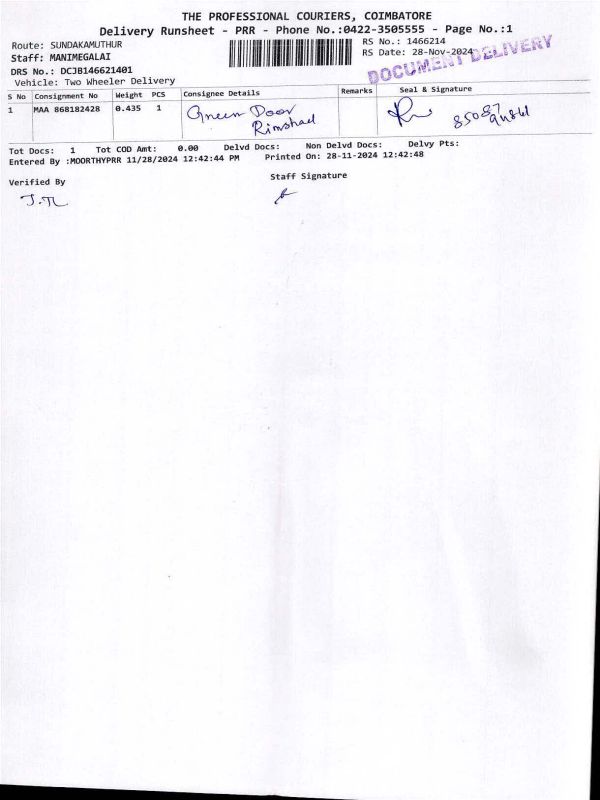 THE PROFESSIONAL COURIERS, COIMBATORE
Delivery Runsheet - PRR - Phone No.:0422-3505555 - Page No.:1
Route: SUNDAKAMUTHUR
RS No.: 1466214
Staff: MANIMEGALAI
RS Date: 28-Nov-2024
DOCUMENT DELIVERY
DRS No.: DCJB146621401
Vehicle: Two Wheeler Delivery
S No Consignment No Weight PCS Consignee Details Remarks Seal & Signature
1 MAA 868182428 0.435 1 Green Door
Rimshad
85087
Tot Docs: 1 Tot COD Amt: 0.00 Delvd Docs: Non Delvd Docs: Delvy Pts:
Entered By :MOORTHYPRR 11/28/2024 12:42:44 PM Printed On: 28-11-2024 12:42:48
Verified By
Staff Signature